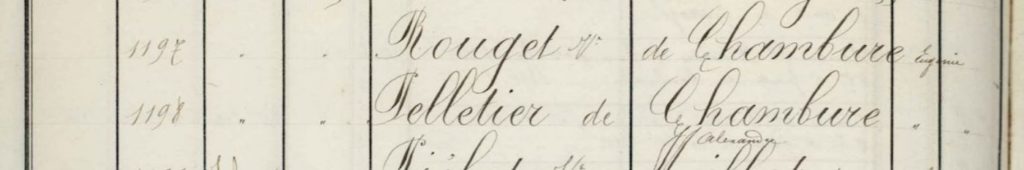 1197 " " Rouget Vve de Chambure Eugénie
1198 " " Pelletier de Chambure " "
Alexandre